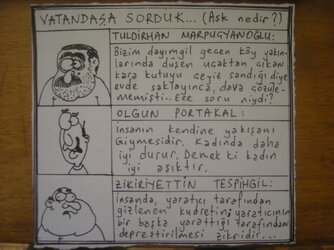 YATANDAŞA SORDUK... (Aşk nedir?)
TULDİRHAN MARPUGYANOĞLU:
Bizim dayımgil geçen köy yakın-
larında düşen uçaktan çıkan
kara kutuyu çeyiz sandığı diye
evde saklayınca, dava çözüle-
memişti.. Eee soru niydi?
OLGUN PORTAKAL:
İnsanın kendine yakışanı
giymesidir. Kadında daha
iyi durur. Demek ki kadın
iyi aşıktır.
ZİKİRİYETTİN TESPİHGİL:
İnsanda, yaratıcı tarafından
gizlenen kudretin, yaratıcının
bir başka yarattığı tarafından
depreştirilmesi zikridir...